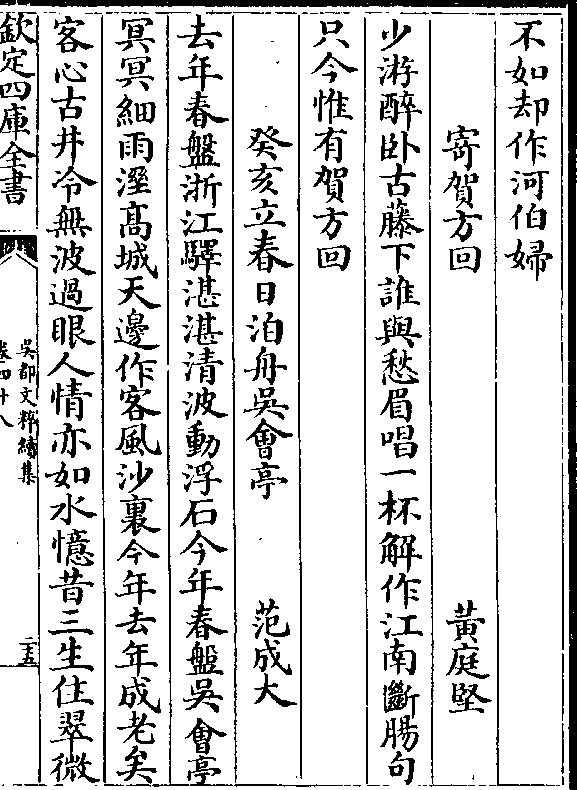 不如却作河伯婦
寄賀方回　黃庭堅
少游醉卧古藤下誰與愁眉唱一杯解作江南斷腸句
只今惟有賀方回
癸亥立春日泊舟吳會亭　范成大
去年春盤浙江驛湛湛清波動浮石今年春盤吳會亭
冥冥細雨溼髙城天邊作客風沙裏今年去年成老矣
客心古井冷無波過眼人情亦如水憶昔三生住翠微
欽定四庫全書
吳都文粹續集
卷四十八
二五